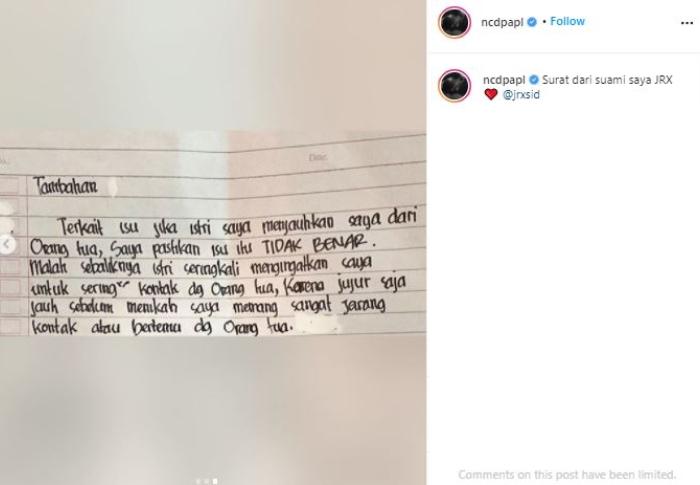 ncdpapl • Follow
ncdpapl Surat dari suami saya JRX
@jrxsid
Date:
Tambahan
Terkait isu jika istri saya menjauhkan saya dari
Orang tua, Saya pastikan isu itu TIDAK BENAR.
Malah sebaliknya istri seringkali mengingatkan saya
untuk sering² kontak dg Orang tua, Karena jujur saja
jauh sebelum menikah saya memang sangat jarang
kontak atau bertemu dg Orang tua.
Comments on this post have been limited.